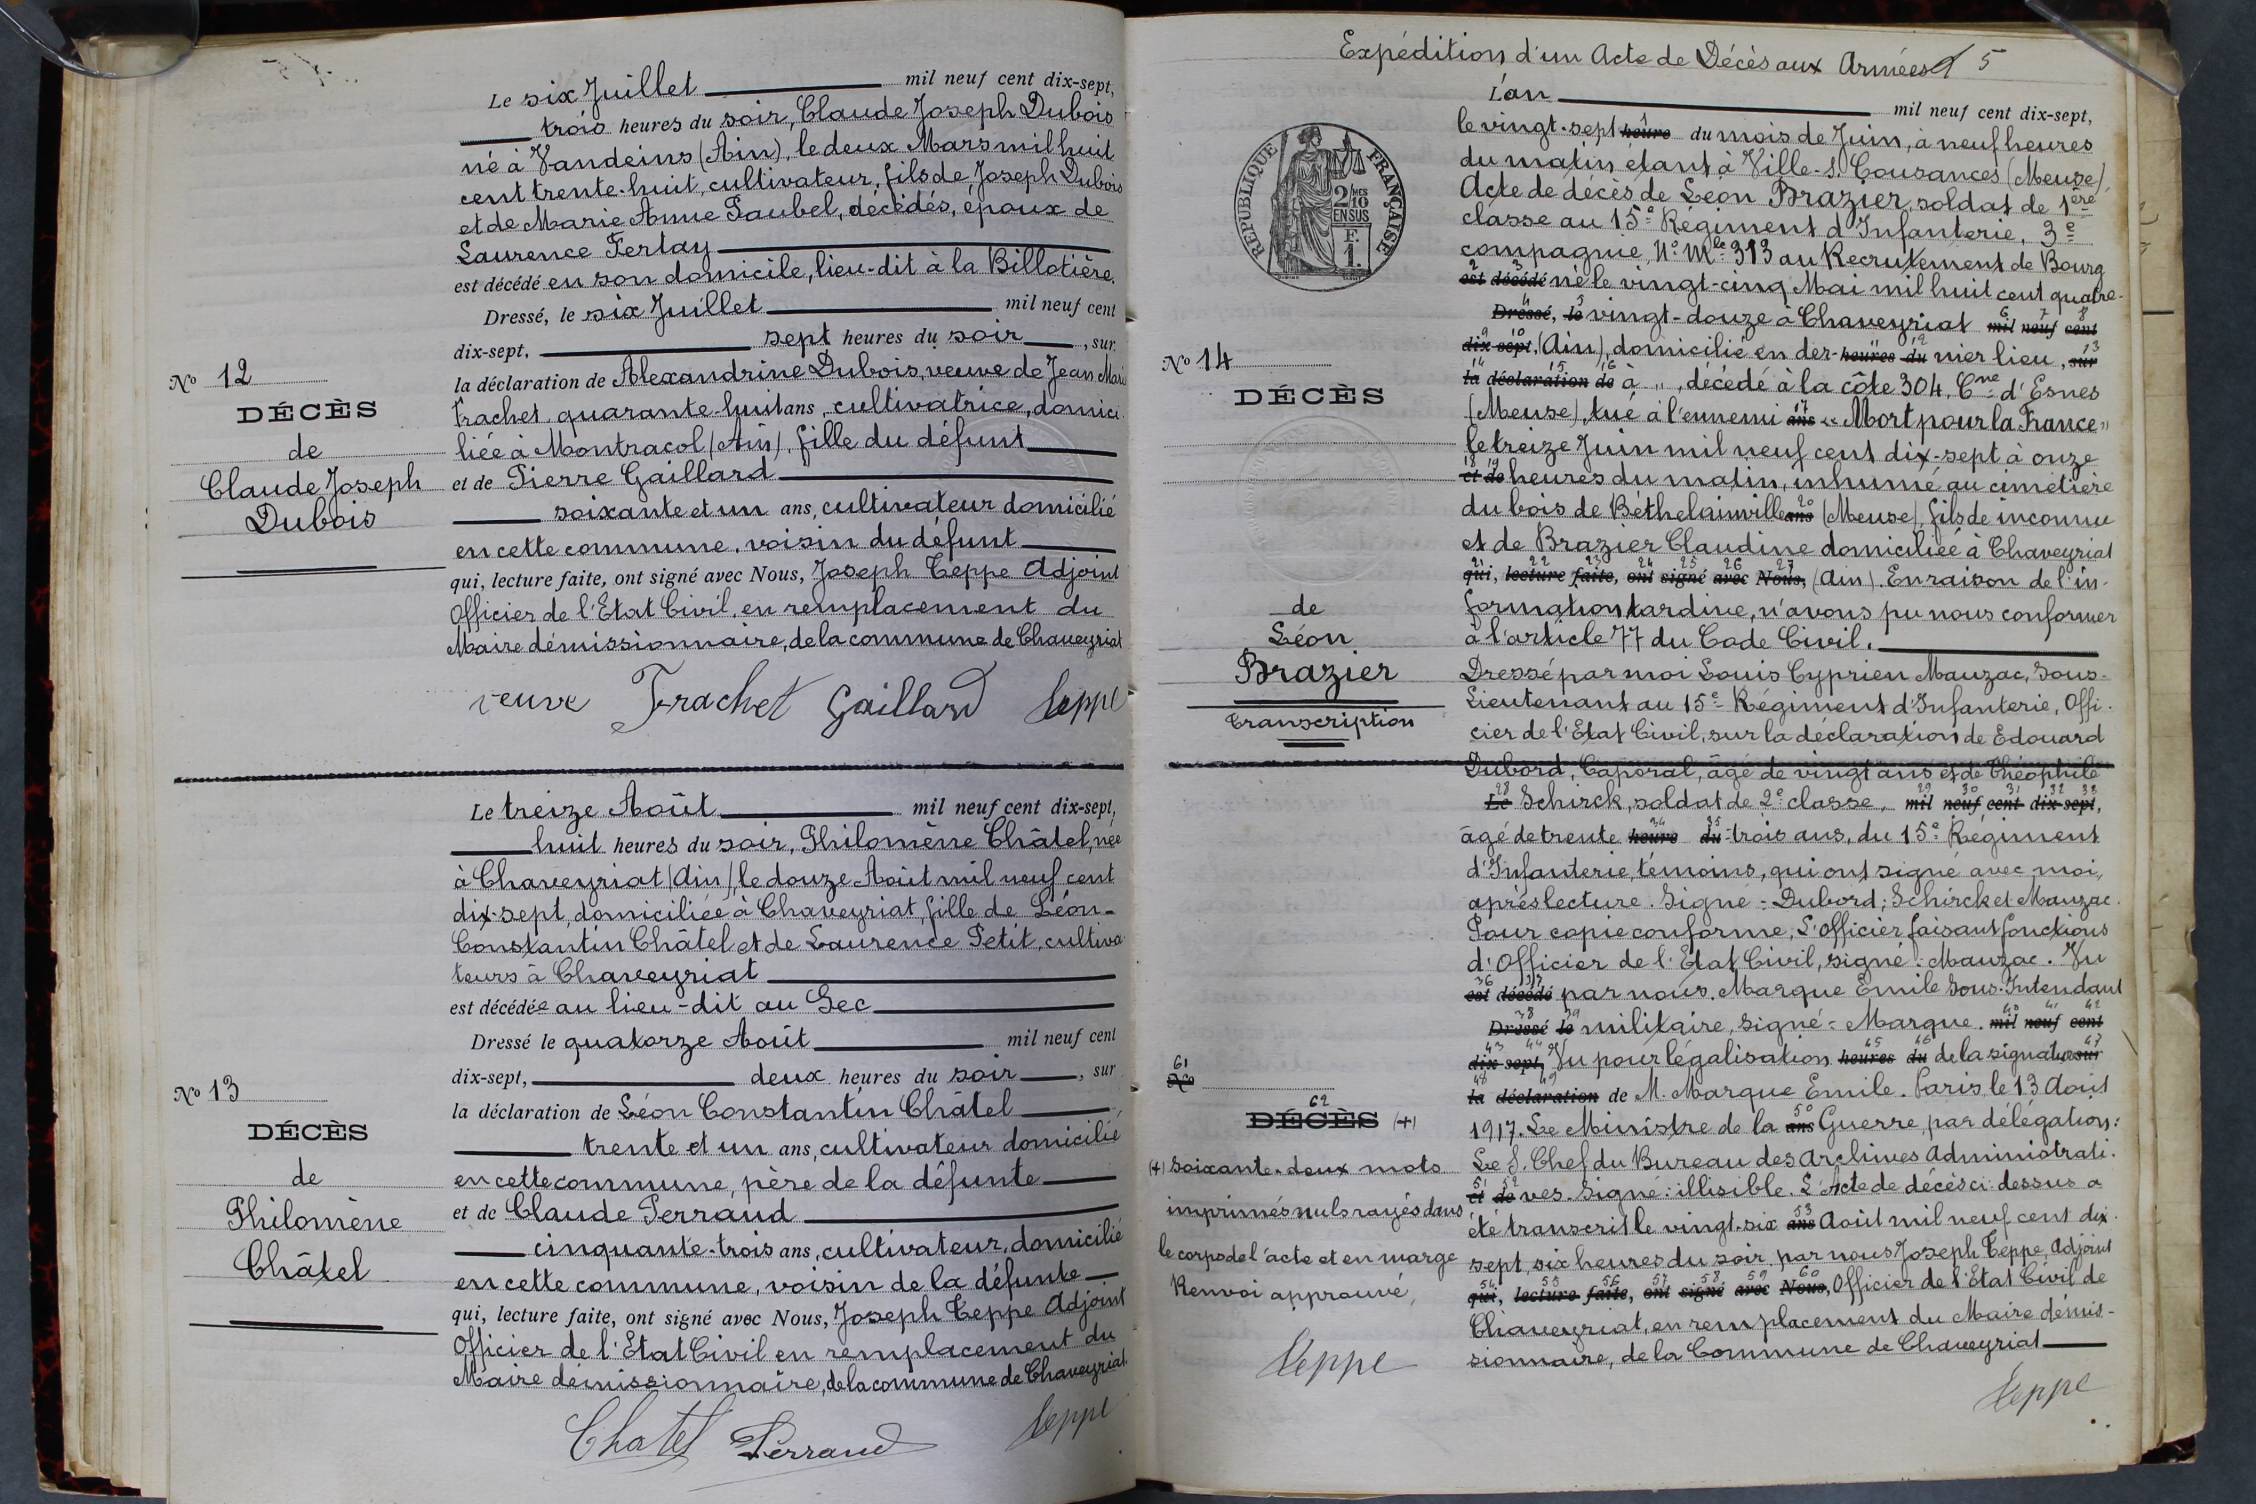 Le six Juillet mil neuf cent dix-sept,
trois heures du soir, Claude Joseph Dubois
né à Vandeins (Ain), le deux Mars mil huit
cent trente-huit, cultivateur, fils de Joseph Dubois
et de Marie Anne Paubel, décédés, époux de
Laurence Fertay
est décédé en son domicile, lieu-dit à la Billotière.
Dressé, le six Juillet mil neuf cent
dix-sept, sept heures du soir, sur
la déclaration de Alexandrine Dubois, veuve de Jean Marie
Frachet, quarante-huit ans, cultivatrice, domici
liée à Montracol (Ain), fille du défunt
et de Pierre Gaillard
soixante et un ans, cultivateur domicilié
en cette commune, voisin du défunt
qui, lecture faite, ont signé avec Nous, Joseph Teppe Adjoint
Officier de l'Etat Civil, en remplacement du
Maire démissionnaire, de la commune de Chaveyriat
veuve Frachet Gaillard Teppe
No 12
DÉCÈS
de
Claude Joseph
Dubois
Le treize Août mil neuf cent dix-sept,
huit heures du soir, Philomène Châtel, née
à Chaveyriat (Ain) le douze Août mil neuf cent
dix-sept, domiciliée à Chaveyriat, fille de Léon-
Constantin Châtel et de Laurence Petit, cultiva
teurs à Chaveyriat
est décédée au lieu-dit au Sec
Dressé le quatorze Août mil neuf cent
dix-sept, deux heures du soir, sur
la déclaration de Léon Constantin Châtel
trente et un ans, cultivateur domicilié
en cette commune, père de la défunte
et de Claude Perraud
cinquante-trois ans, cultivateur, domicilié
en cette commune, voisin de la défunte
qui, lecture faite, ont signé avec Nous, Joseph Teppe Adjoint
Officier de l'Etat Civil en remplacement du
Maire démissionnaire, de la commune de Chaveyriat
Chatel Perraud Teppe
No 13
DÉCÈS
de
Philomène
Châtel
Expédition d'un Acte de Décès aux Armées 5
L'an mil neuf cent dix-sept,
le vingt-sept heure du mois de Juin, à neuf heures
du matin étant à Ville-s. Cousances (Meuse),
Acte de décès de Léon Brazier, soldat de 1ère
classe au 15e Régiment d'Infanterie, 3e
compagnie, No Mle 313 au Recrutement de Bourg
est décédé né le vingt-cinq Mai mil huit cent quatre-
Dressé, le vingt-douze à Chaveyriat mil neuf cent
dix sept, (Ain), domicilié en der- heures du nier lieu, sur
la déclaration de à ", décédé à la côte 304, Cne d'Esnes
(Meuse), tué à l'ennemi ans "Mort pour la France"
le treize Juin mil neuf cent dix-sept à onze
et de heures du matin, inhumé au cimetière
du bois de Béthelainville ans (Meuse), fils de inconnu
et de Brazier Claudine domiciliée à Chaveyriat
qui, lecture faite, ont signé avec Nous, (Ain). En raison de l'in-
formation tardive, n'avons pu nous conformer
à l'article 77 du Code Civil.
Dressé par moi Louis Cyprien Mauzac, Sous-
Lieutenant au 15e Régiment d'Infanterie, Offi-
cier de l'Etat Civil, sur la déclaration de Edouard
Dubord, Caporal, âgé de vingt ans et de Théophile
Le Schirck, soldat de 2e classe, mil neuf cent dix-sept,
âgé de trente heure du -trois ans, du 15e Régiment
d'Infanterie, témoins, qui ont signé avec moi,
après lecture. Signé : Dubord; Schirck et Mauzac.
Pour copie conforme, L'officier faisant fonctions
d'Officier de l'Etat Civil, signé : Mauzac. Vu
est décédé par nous, Marque Emile Sous-Intendant
Dressé le militaire, signé = Marque. mil neuf cent
dix-sept, Vu pour légalisation heures du de la signature sur
la déclaration de M. Marque Emile. Paris le 13 Août
1917. Le Ministre de la ans Guerre, par délégation:
Le s. Chef du Bureau des Archives Administrati-
et de ves. Signé : illisible. L'Acte de décès ci-dessus a
été transcrit le vingt-six ans Août mil neuf cent dix-
sept, six heures du soir, par nous Joseph Teppe, Adjoint
qui, lecture faite, ont signé avec Nous, Officier de l'Etat Civil de
Chaveyriat, en remplacement du Maire démis-
sionnaire, de la Commune de Chaveyriat
Teppe
RÉPUBLIQUE FRANÇAISE
2/10 MES
EN SUS
F.
1.
No 14
DÉCÈS
de
Léon
Brazier
transcription
61
No
62
DÉCÈS (+)
(+) Soixante-deux mots
imprimés nuls rayés dans
le corps de l'acte et en marge
Renvoi approuvé,
Teppe